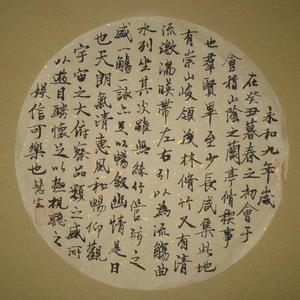 永和九年歲
在癸丑暮春之初會于
會稽山陰之蘭亭脩稧事
也群賢畢至少長咸集此地
有崇山峻領茂林脩竹又有清
流激湍暎帶左右引以為流觴曲
水列坐其次雖無絲竹管弦之
盛一觴一詠亦足以暢敘幽情是日
也天朗氣清惠風和暢仰觀
宇宙之大俯察品類之盛所
以遊目騁懷足以極視聽之
娛信可樂也